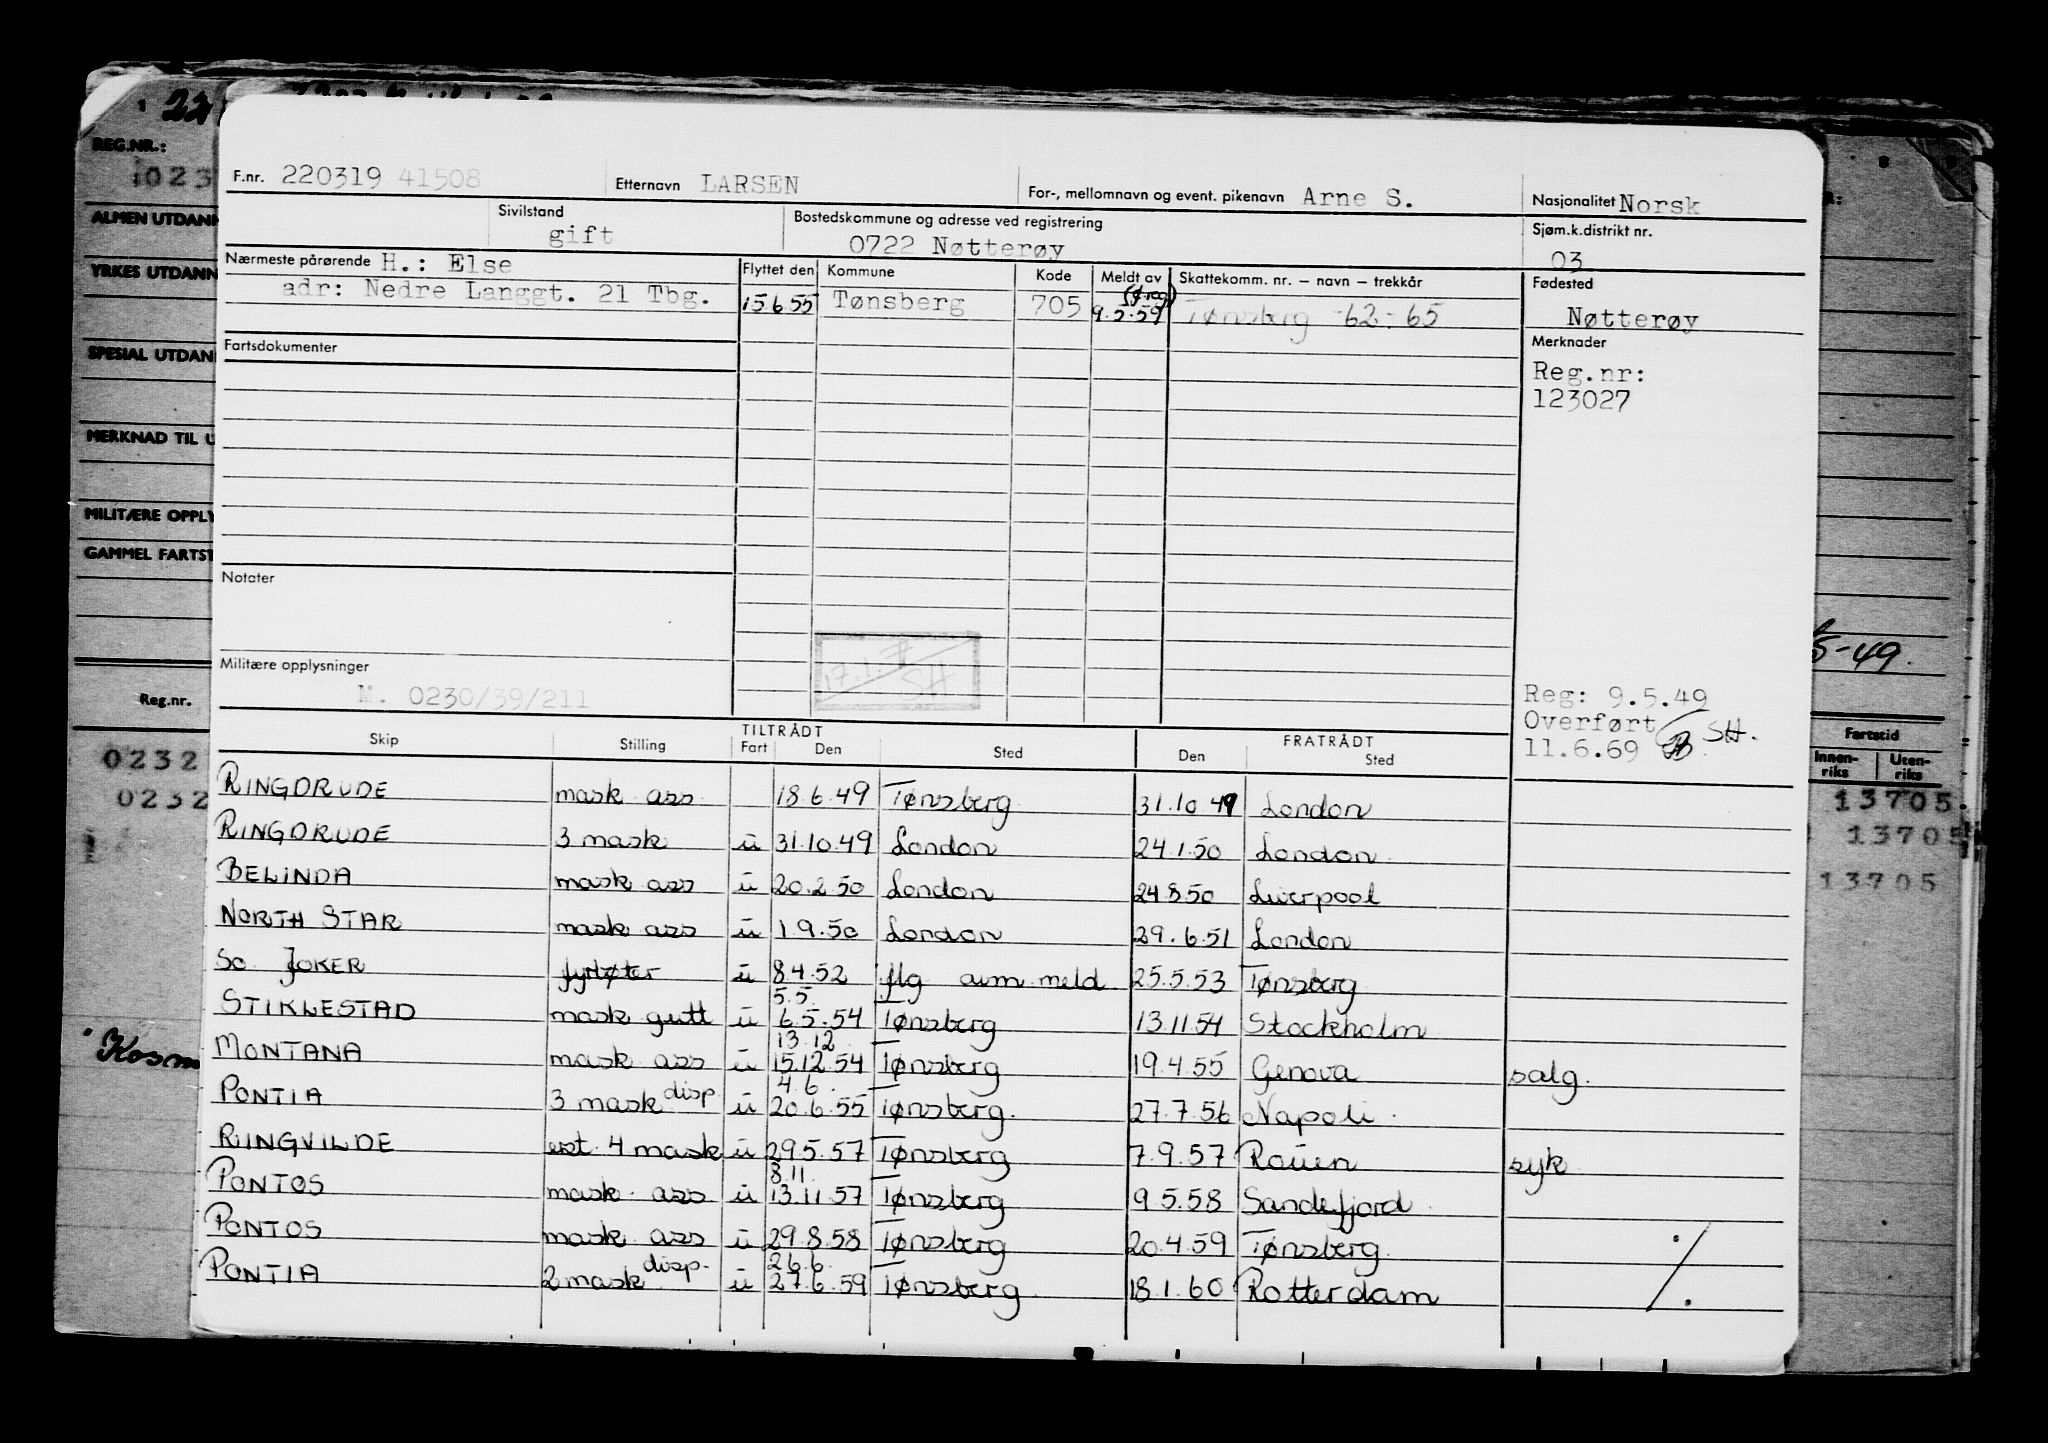 REG.NR.:
ALMEN UTDANN
YRKES UTDANN
SPESIAL UTDAN
MERKNAD TIL U
MILITÆRE OPPLY
GAMMEL FARTST
Reg.nr.
0232
0232
Kosm
F.nr. 220319 41508 Etternavn LARSEN For-, mellomnavn og event. pikenavn Arne S. Nasjonalitet Norsk
Sivilstand gift Bostedskommune og adresse ved registrering 0722 Nøtterøy Sjøm.k.distrikt nr. 03
Nærmeste pårørende H.: Else
adr: Nedre Langgt. 21 Tbg.
Flyttet den Kommune Kode Meldt av Skattekomm. nr. – navn – trekkår
15.6.55 Tønsberg 705 9.5.59 Tønsberg -62-65
Fødested
Nøtterøy
Fartsdokumenter
Merknader
Reg.nr:
123027
Notater
Militære opplysninger
M. 0230/39/211
SH
Reg: 9.5.49
Overført
11.6.69 SH.
5-49.
Fartstid
Innen-riks Uten-riks
13705.
13705
13705
TILTRÅDT FRATRÅDT
Skip Stilling Fart Den Sted Den Sted
RINGDRUDE mask ass 18.6.49 Tønsberg 31.10 49 London
RINGDRUDE 3 mask u 31.10.49 London 24.1.50 London
BELINDA mask ass u 20.2 50 London 24 8 50 Liverpool
NORTH STAR mask ass u 1 9.50 London 29.6.51 London
Sc. JOKER fyrbøter u 8 4.52 flg aum meld 25.5.53 Tønsberg
5.5.
STIKLESTAD mask gutt u 6 5.54 Tønsberg 13.11 54 Stockholm
13.12.
MONTANA mask ass u 15.12.54 Tønsberg 19.4.55 Genova salg.
4.6.
PONTIA 3 mask disp. u 20.6.55 Tønsberg. 27.7.56 Napoli.
RINGVILDE ext. 4 mask u 29.5.57 Tønsberg 7.9.57 Rouen syk
8.11.
PONTOS mask. ass u 13.11.57 Tønsberg 9 5.58 Sandefjord
PONTOS mask ass u 29.8.58 Tønsberg 20.4.59 Tønsberg.
26.6.
PONTIA 2 mask disp. u 27.6.59 Tønsberg 18.1.60 Rotterdam